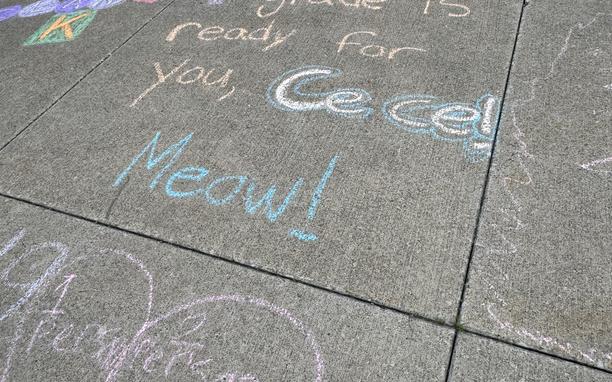 K
grade is
ready for
you, CeCe!
Meow!
1
2